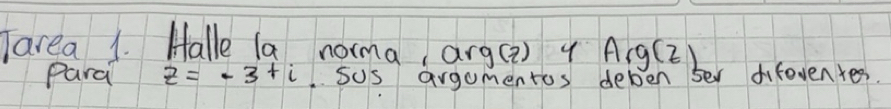 Tarea 1. Halle la norma, arg(z) y Arg(z)
Para z = -3 + i. Sus argumentos deben ser diferentes.